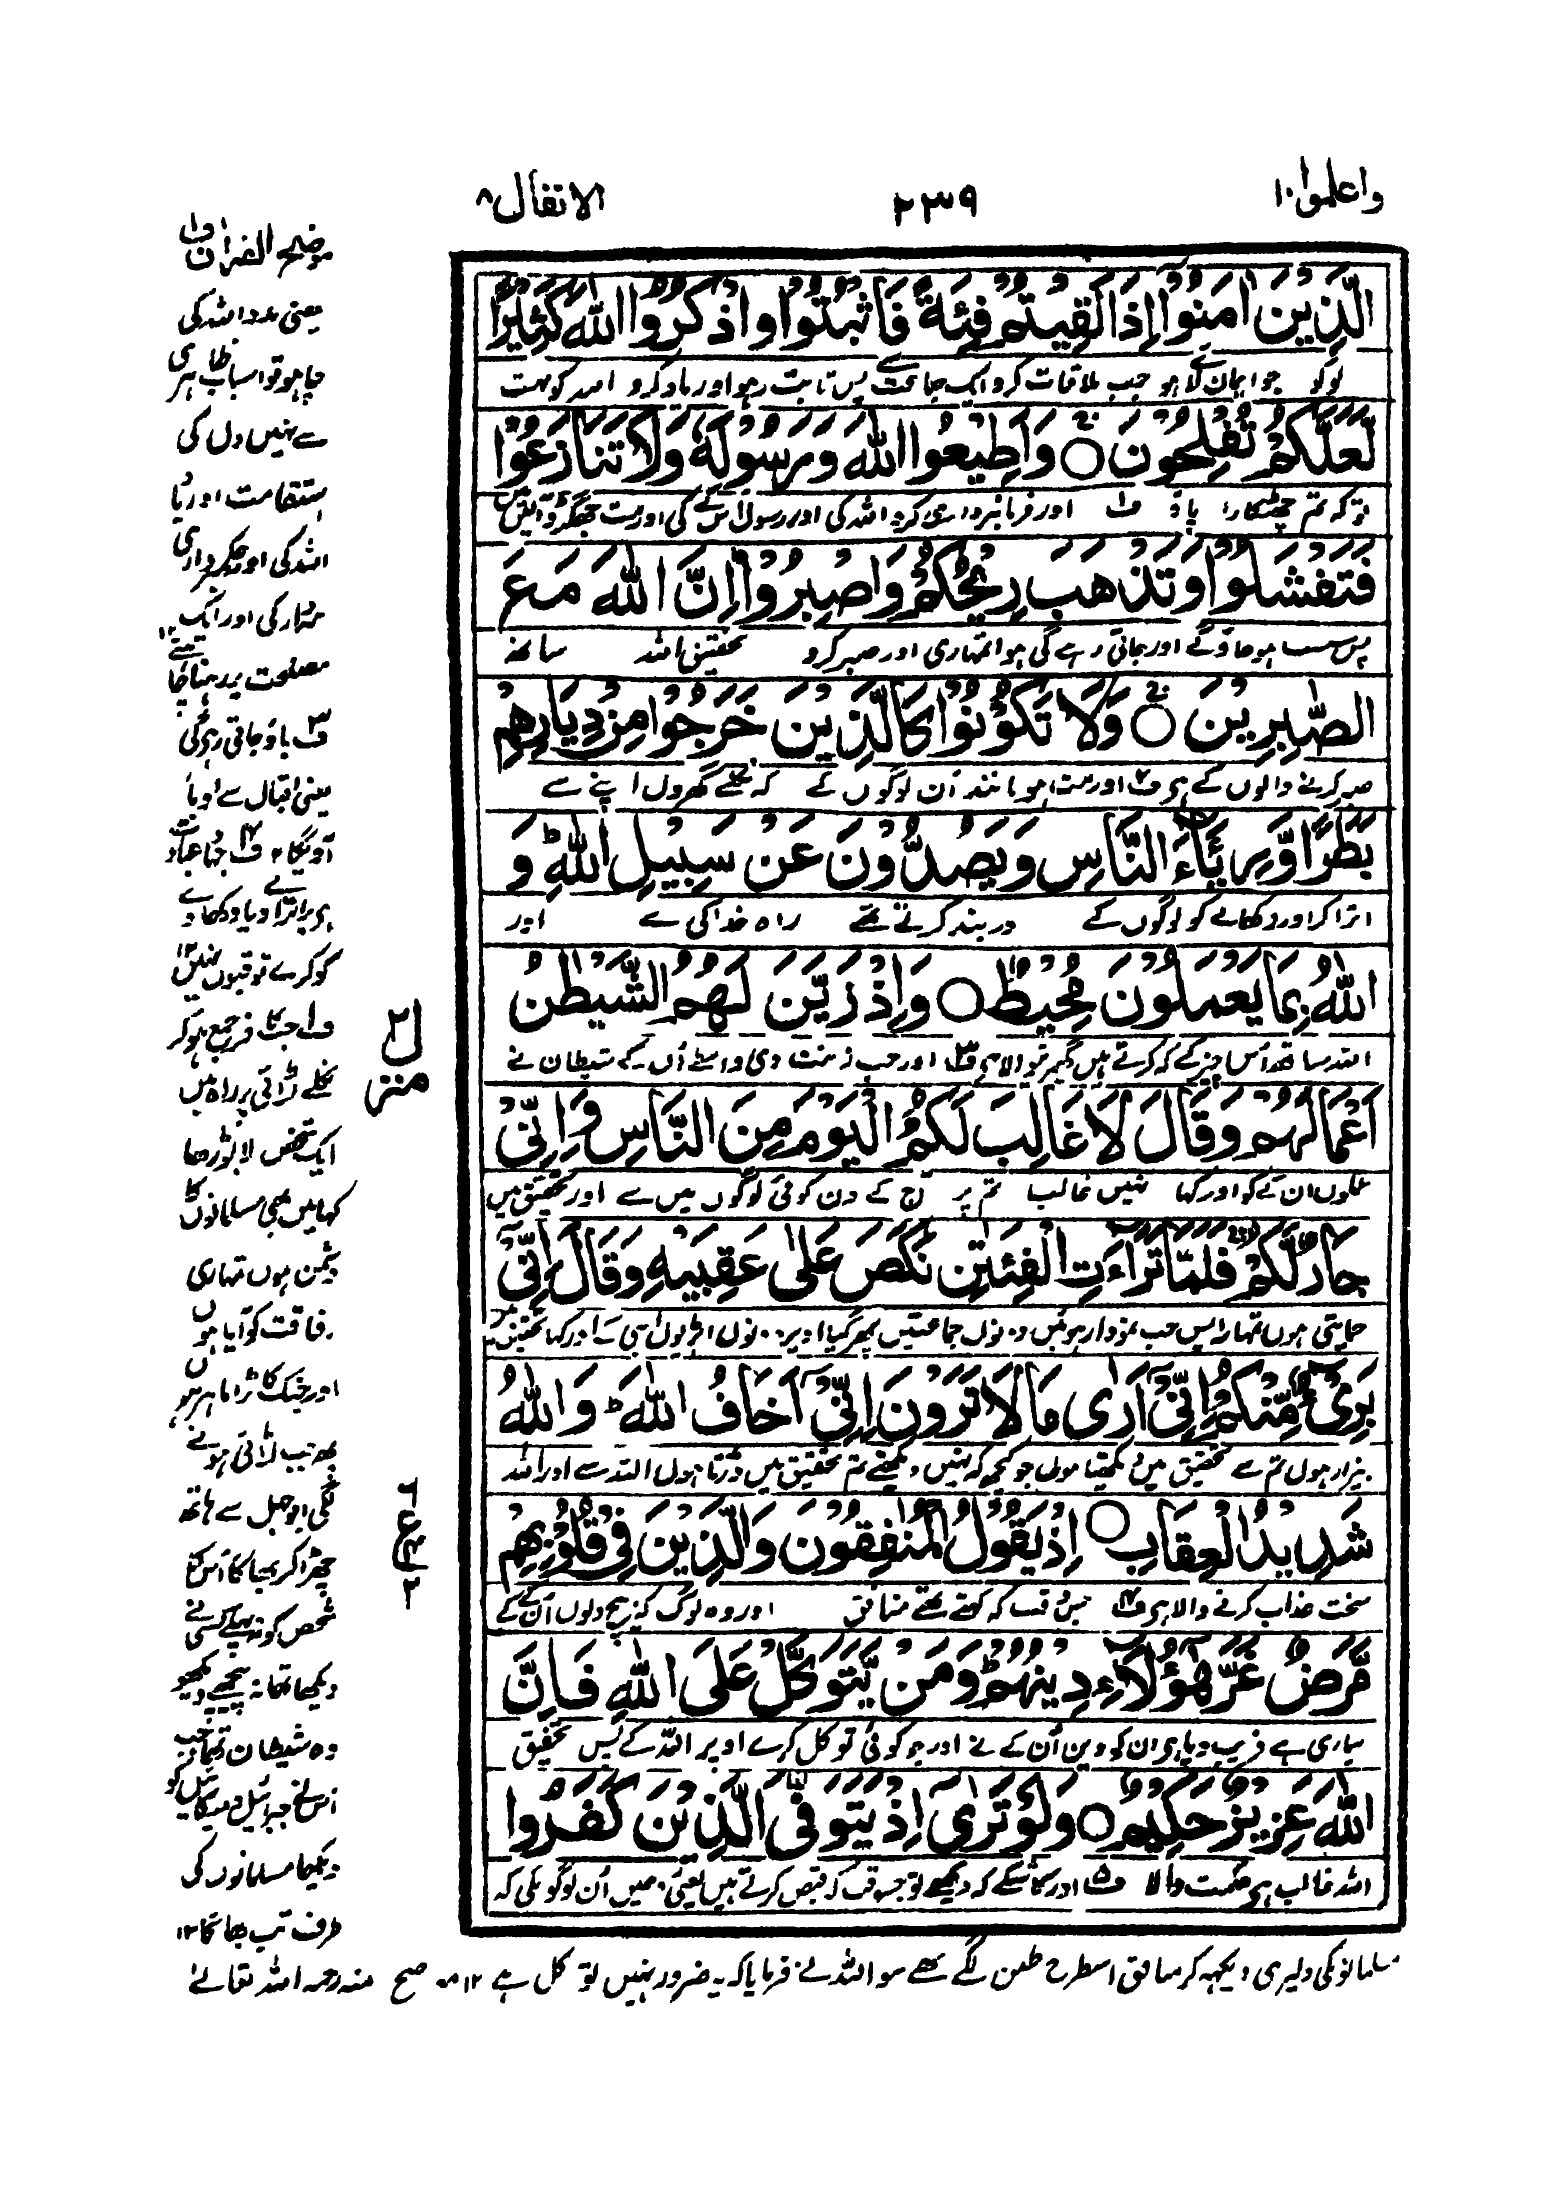 واعلموا ۱۰
۲۳۹
الانفال ۸
الَّذِيْنَ اٰمَنُوْٓا اِذَا لَقِيْتُمْ فِئَةً فَاثْبُتُوْا وَاذْكُرُوا اللّٰهَ كَثِيْرًا
لوگو جو ایمان لائے ہو جب ملاقات کرو ایک جماعت سے پس ثابت رہو اور یاد کرو اللہ کو بہت
لَّعَلَّكُمْ تُفْلِحُوْنَ ○ وَاَطِيْعُوا اللّٰهَ وَرَسُوْلَهٗ وَلَا تَنَازَعُوْا
تو کہ تم چھٹکارا پاؤ ف۱ اور فرمانبرداری کرو اللہ کی اور رسول اس کے کی اور مت جھگڑو آپس میں
فَتَفْشَلُوْا وَتَذْهَبَ رِيْحُكُمْ وَاصْبِرُوْا ؕ اِنَّ اللّٰهَ مَعَ
پس سست ہو جاؤ گے اور جاتی رہے گی ہوا تمہاری اور صبر کرو تحقیق اللہ ساتھ
الصّٰبِرِيْنَ ○ وَلَا تَكُوْنُوْا كَالَّذِيْنَ خَرَجُوْا مِنْ دِيَارِهِمْ
صبر کرنے والوں کے ہے ف۲ اور مت ہو مانند ان لوگوں کے کہ نکلے گھروں اپنے سے
بَطَرًا وَّرِئَآءَ النَّاسِ وَيَصُدُّوْنَ عَنْ سَبِيْلِ اللّٰهِ ؕ وَ
اترا کر اور دکھانے کو لوگوں کے اور بند کرتے تھے راہ خدا کی سے اور
اللّٰهُ بِمَا يَعْمَلُوْنَ مُحِيْطٌ ○ وَاِذْ زَيَّنَ لَهُمُ الشَّيْطٰنُ
اللہ ساتھ اس چیز کے کہ کرتے ہیں گھیرنے والا ہے ف۳ اور جب زینت دی واسطے اُن کے شیطان نے
اَعْمَالَهُمْ وَقَالَ لَا غَالِبَ لَكُمُ الْيَوْمَ مِنَ النَّاسِ وَاِنِّيْ
عملوں ان کے کو اور کہا نہیں غالب تم پر آج کے دن کوئی لوگوں میں سے اور تحقیق میں
جَارٌ لَّكُمْ ۚ فَلَمَّا تَرَآءَتِ الْفِئَتٰنِ نَكَصَ عَلٰى عَقِبَيْهِ وَقَالَ اِنِّيْ
حمایتی ہوں تمہارا پس جب نمودار ہوئیں دونوں جماعتیں پھر گیا اوپر دونوں ایڑیوں اپنی کے اور کہا تحقیق میں
بَرِيْٓءٌ مِّنْكُمْ اِنِّيْٓ اَرٰى مَا لَا تَرَوْنَ اِنِّيْٓ اَخَافُ اللّٰهَ ؕ وَاللّٰهُ
بیزار ہوں تم سے تحقیق میں دیکھتا ہوں جو کچھ کہ نہیں دیکھتے تم تحقیق میں ڈرتا ہوں اللہ سے اور اللہ
شَدِيْدُ الْعِقَابِ ○ اِذْ يَقُوْلُ الْمُنٰفِقُوْنَ وَالَّذِيْنَ فِيْ قُلُوْبِهِمْ
سخت عذاب کرنے والا ہے ف۴ جس وقت کہ کہتے تھے منافق اور وہ لوگ کہ بیچ دلوں اُن کے کے
مَّرَضٌ غَرَّ هٰٓؤُلَآءِ دِيْنُهُمْ ؕ وَمَنْ يَّتَوَكَّلْ عَلَى اللّٰهِ فَاِنَّ
بیماری ہے فریب دیا ہے ان کو دین اُن کے نے اور جو کوئی توکل کرے اوپر اللہ کے پس تحقیق
اللّٰهَ عَزِيْزٌ حَكِيْمٌ ○ وَلَوْ تَرٰٓى اِذْ يَتَوَفَّى الَّذِيْنَ كَفَرُوا
اللہ غالب ہے حکمت والا ف۵ اور کاشکے کہ دیکھے تو جس وقت کہ قبض کرتے ہیں یعنی روحیں اُن لوگوں کی کہ
موضح القرآن ف۱
یعنی مدد اللہ کی
چاہو تو اسباب ظاہری
سے نہیں دل کی
استقامت اور یاد
اللہ کی اور حکم برداری
سردار کی اور ایک
مصلحت پر رہنا چاہئے ۱۲
ف۲ باؤ جاتی رہے گی
یعنی اقبال سے ادبار
آویگا ۱۲ ف۳ جہاد عبادت
ہے پر اتراوے یا دکھاوے
کو کرے تو قبول نہیں ۱۲
ف۴ جب کافر جمع ہو کر
نکلے لڑائی پر راہ میں
ایک شخص بوڑھا
کہا میں بھی مسلمانوں کا
دشمن ہوں تمہاری
رفاقت کو آیا ہوں
اور جنگ کا بڑا ماہر ہوں
پھر جب لڑائی ہونے
لگی ابوجہل سے ہاتھ
چھڑا کر بھاگا اس
شخص کو نہ پہلے کسی نے
دیکھا تھا نہ پیچھے دیکھا
وہ شیطان تھا جب
اس نے جبرائیل و میکائیل کو
دیکھا مسلمانوں کی
طرف تب بھاگا ۱۲
منزل ۲
ع
۲
مسلمانوں کی دلیری دیکھ کر منافق اسطرح طعن کرنے لگے تھے سو اللہ نے فرمایا کہ یہ غرور نہیں توکل ہے ۱۲ منہ صح منہ رحمہ اللہ تعالےٰ